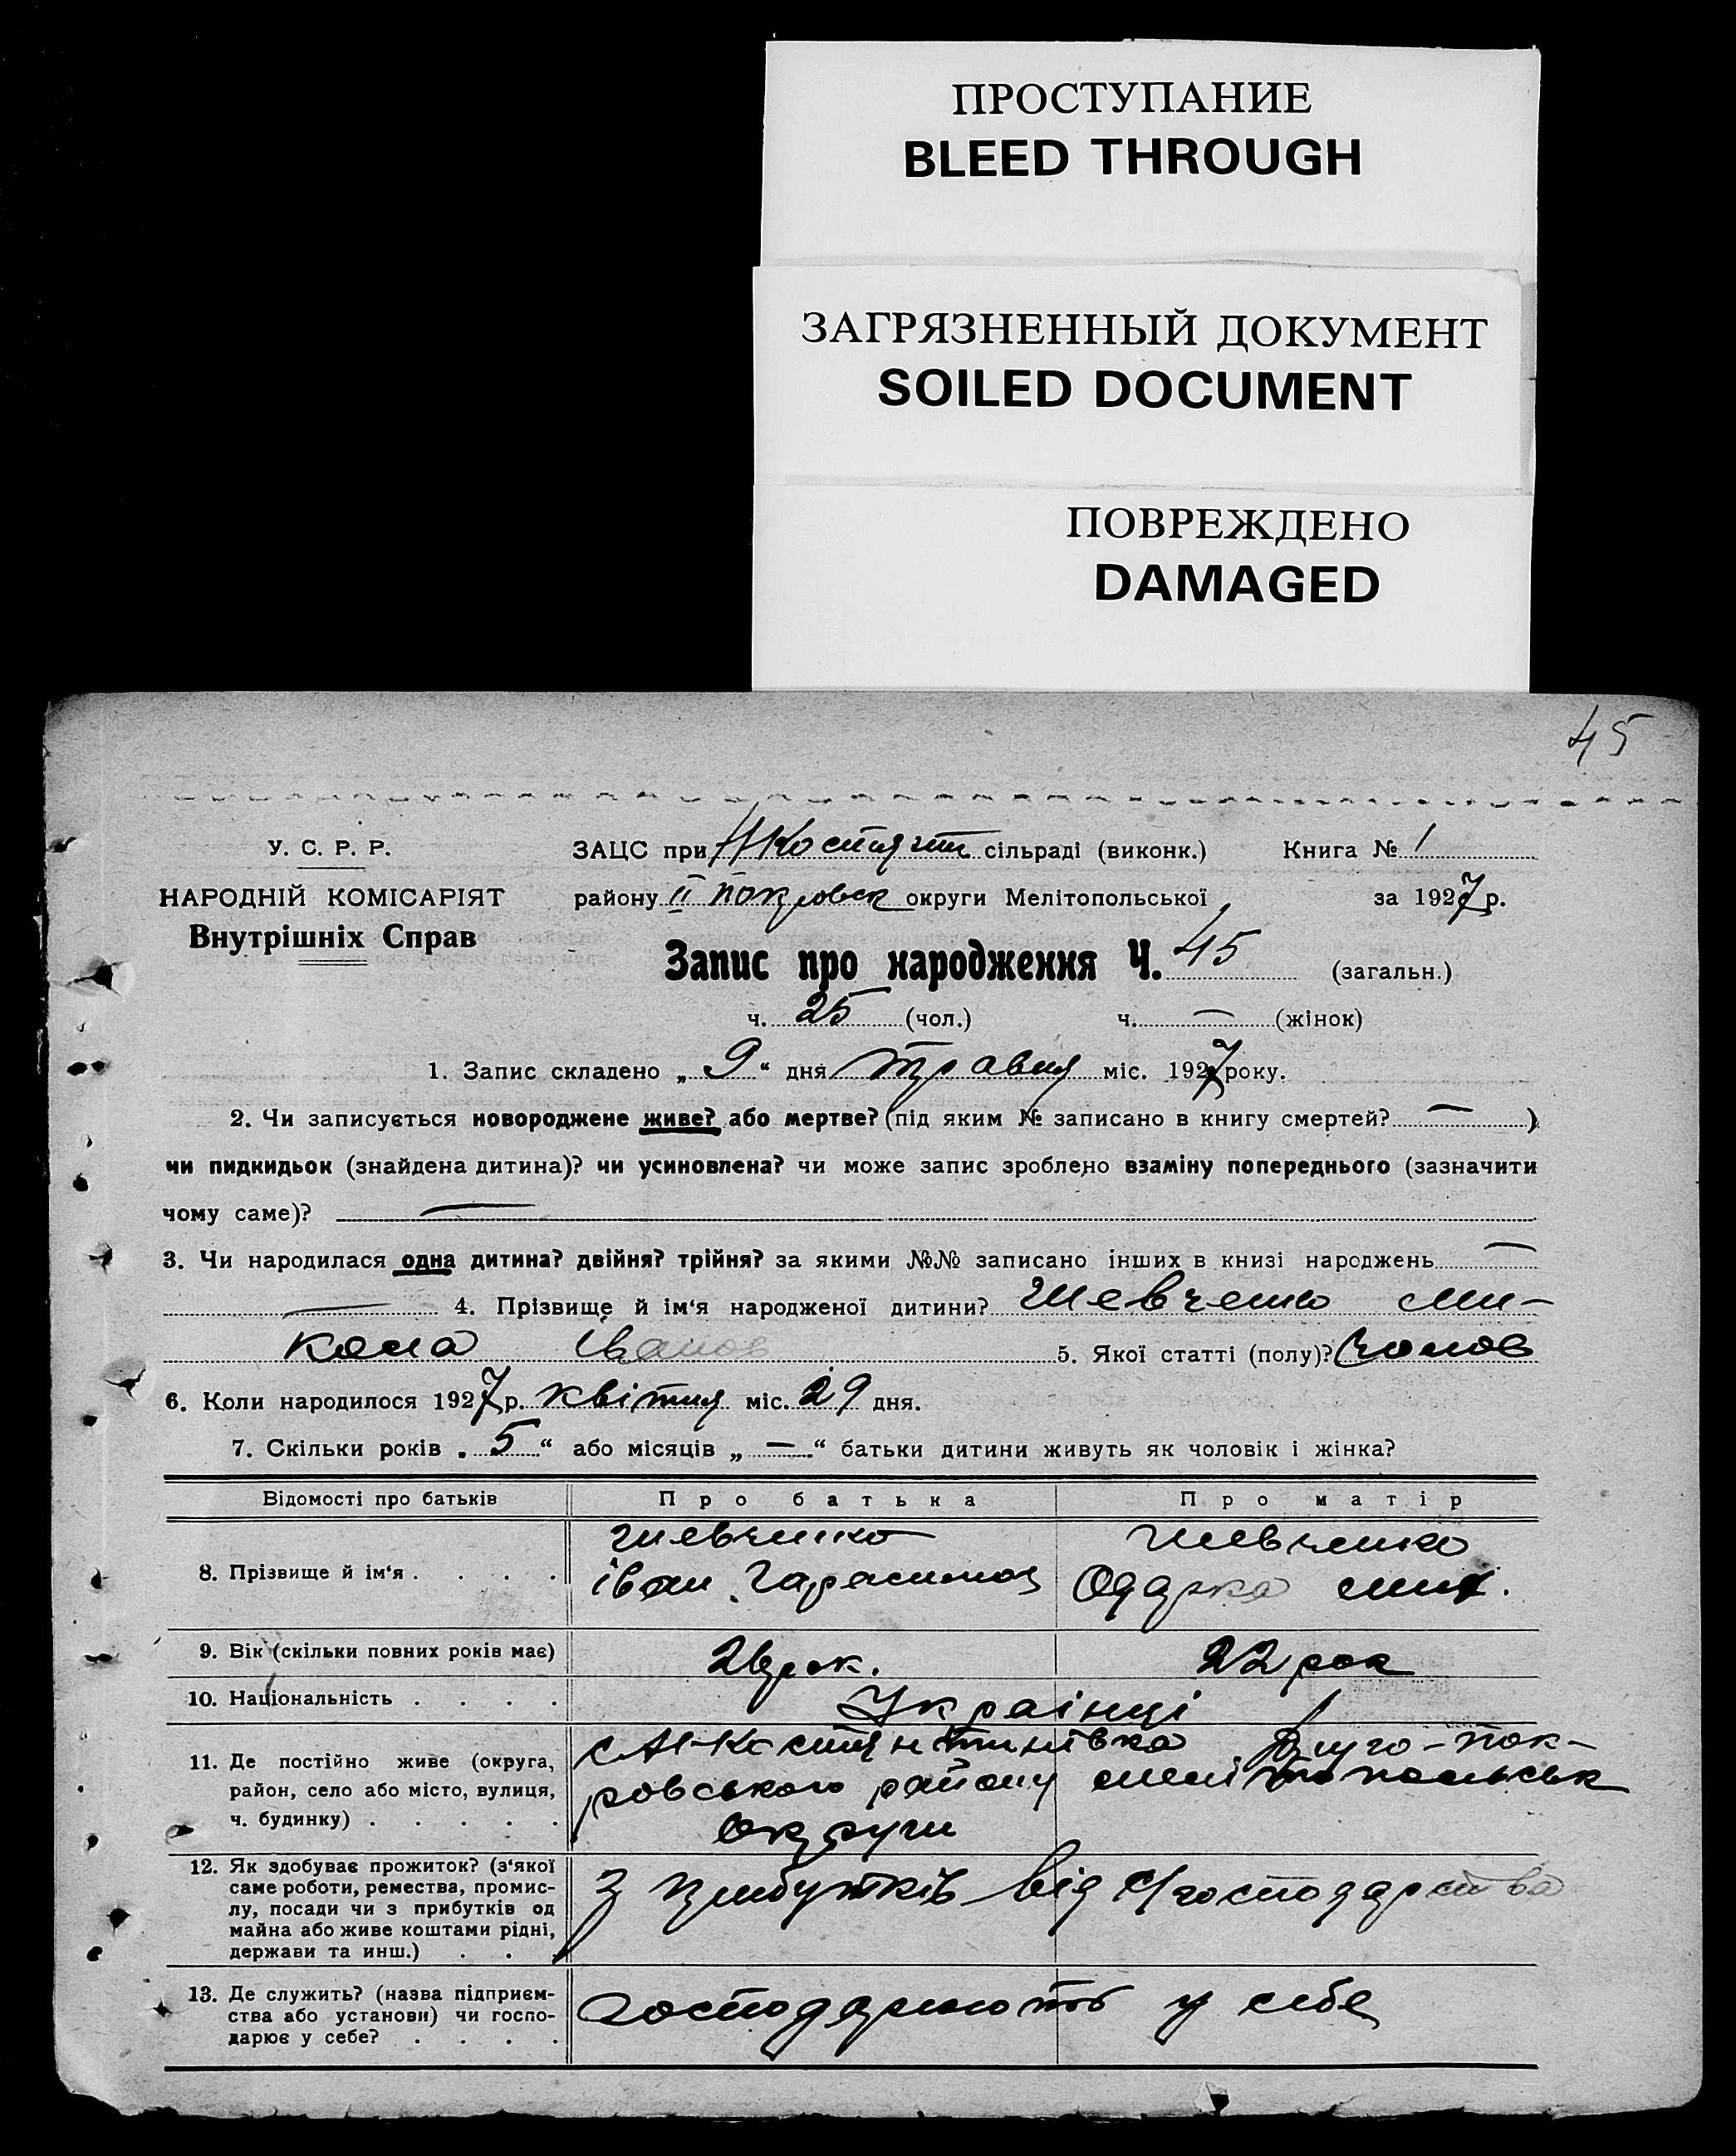 ПРОСТУПАНИЕ
BLEED THROUGH
ЗАГРЯЗНЕННЫЙ ДОКУМЕНТ
SOILED DOCUMENT
ПОВРЕЖДЕНО
DAMAGED
45
У. С. Р. Р.
НАРОДНІЙ КОМІСАРІЯТ
Внутрішніх Справ
ЗАЦС при сільраді (виконк.) Книга № 1
району ІІ Покровск округи Мелітопольської за 1927 р.
Запис про народження Ч. 45 (загальн.)
ч. 25 (чол.) ч. — (жінок)
1. Запис складено „ 9 “ дня травня міс. 1927 року.
2. Чи записується новороджене живе? або мертве? (під яким № записано в книгу смертей? — )
чи пидкидьок (знайдена дитина)? чи усиновлена? чи може запис зроблено взаміну попереднього (зазначити
чому саме)? —
3. Чи народилася одна дитина? двійня? трійня? за якими №№ записано інших в книзі народжень —
— 4. Прізвище й ім‘я народженої дитини? Шевченко Ми-
кола Іванов 5. Якої статті (полу)? Чолов
6. Коли народилося 1927 р. квітня міс. 29 дня.
7. Скільки років „ 5 “ або місяців „ — “ батьки дитини живуть як чоловік і жінка?
Відомості про батьків Про батька Про матір
8. Прізвище й ім‘я . . . . Шевченко Шевченко
Іван Гарасимов Одарка Мих.
9. Вік (скільки повних років має) рок. 22 рок
10. Національність . . . . Українці
11. Де постійно живе (округа,
район, село або місто, вулиця,
ч. будинку) . . . . .
Костянтинівка Друго-Пок-
ровського району Мелітопольськ
округи
12. Як здобуває прожиток? (з‘якої
саме роботи, ремества, промис-
лу, посади чи з прибутків од
майна або живе коштами рідні,
держави та инш.) . . .
З прибутків від с/господарства
13. Де служить? (назва підприєм-
ства або установи) чи госпо-
дарює у себе? . . . .
Господарюють у себе